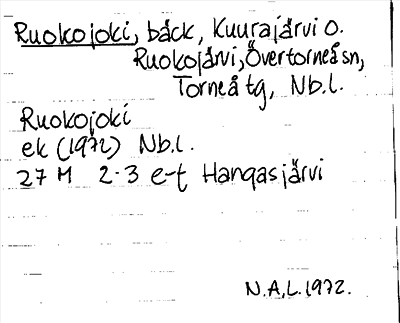 Ruokojoki, bäck, Kuurajärvi o.
Ruokojärvi, Övertorneå sn,
Torneå tg, Nb.l.
Ruokojoki
ek (1972) Nb.l.
27 M 2-3 e-f Hangasjärvi
N.A.L. 1972.